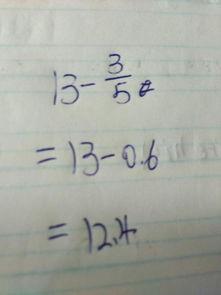 13 - 3/5
= 13 - 0.6
= 12.4